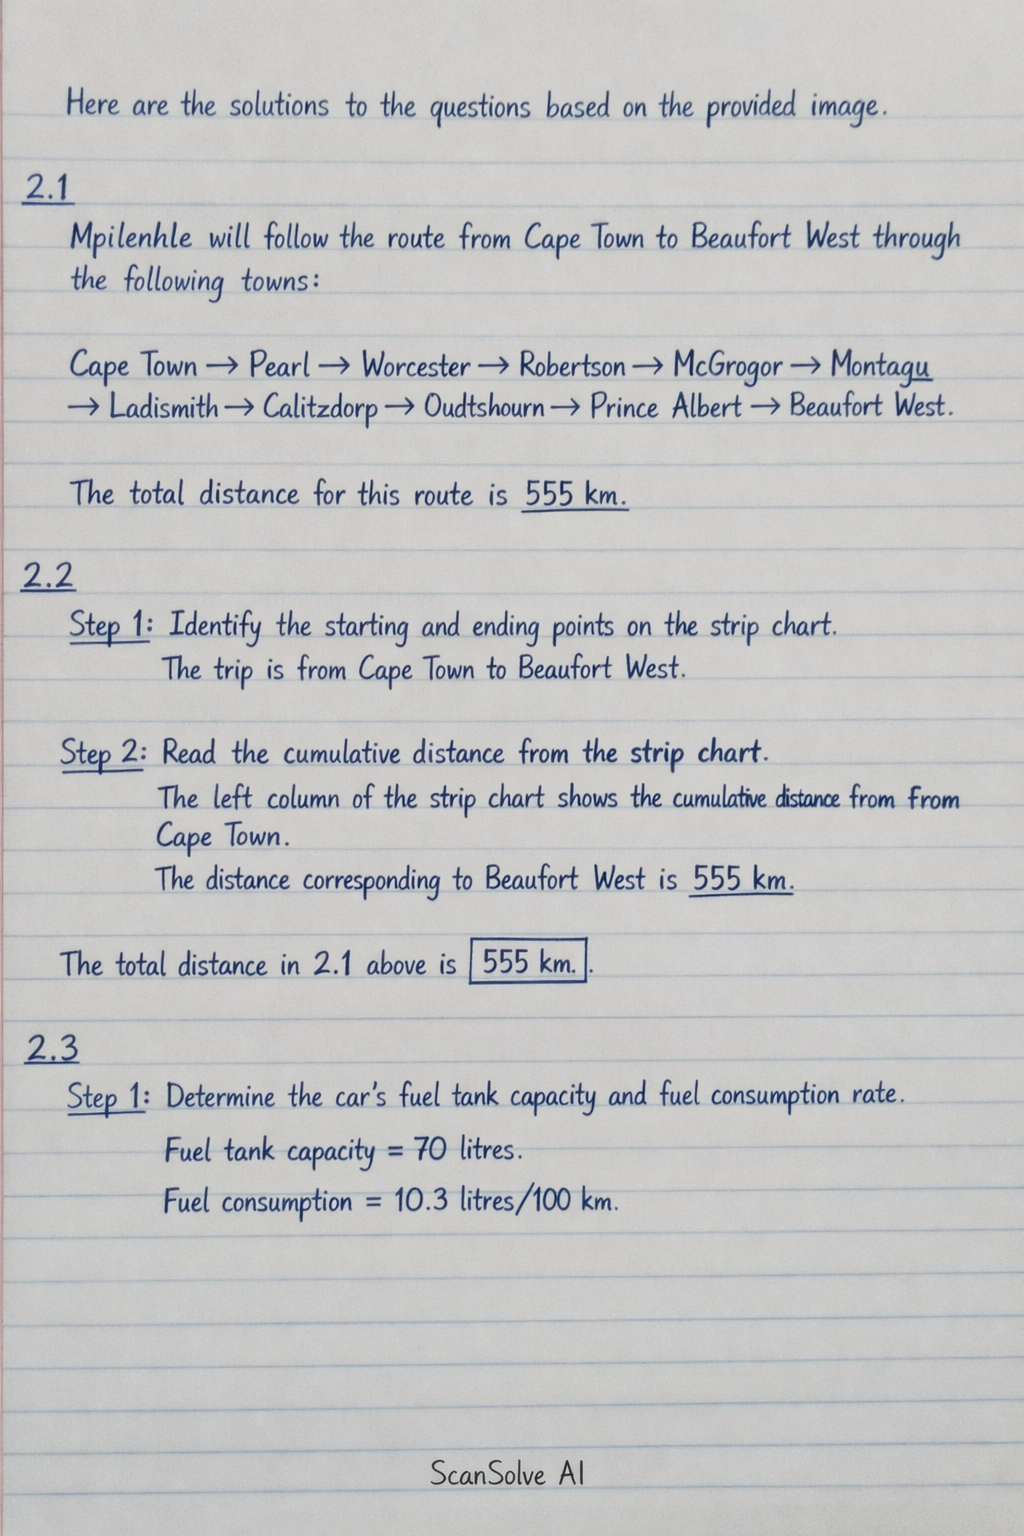 Here are the solutions to the questions based on the provided image.
2.1
Mpilenhle will follow the route from Cape Town to Beaufort West through
the following towns:
Cape Town → Pearl → Worcester → Robertson → McGrogor → Montagu
→ Ladismith → Calitzdorp → Oudtshourn → Prince Albert → Beaufort West.
The total distance for this route is 555 km.
2.2
Step 1: Identify the starting and ending points on the strip chart.
The trip is from Cape Town to Beaufort West.
Step 2: Read the cumulative distance from the strip chart.
The left column of the strip chart shows the cumulative distance from from
Cape Town.
The distance corresponding to Beaufort West is 555 km.
The total distance in 2.1 above is 555 km..
2.3
Step 1: Determine the car's fuel tank capacity and fuel consumption rate.
Fuel tank capacity = 70 litres.
Fuel consumption = 10.3 litres/100 km.
ScanSolve AI